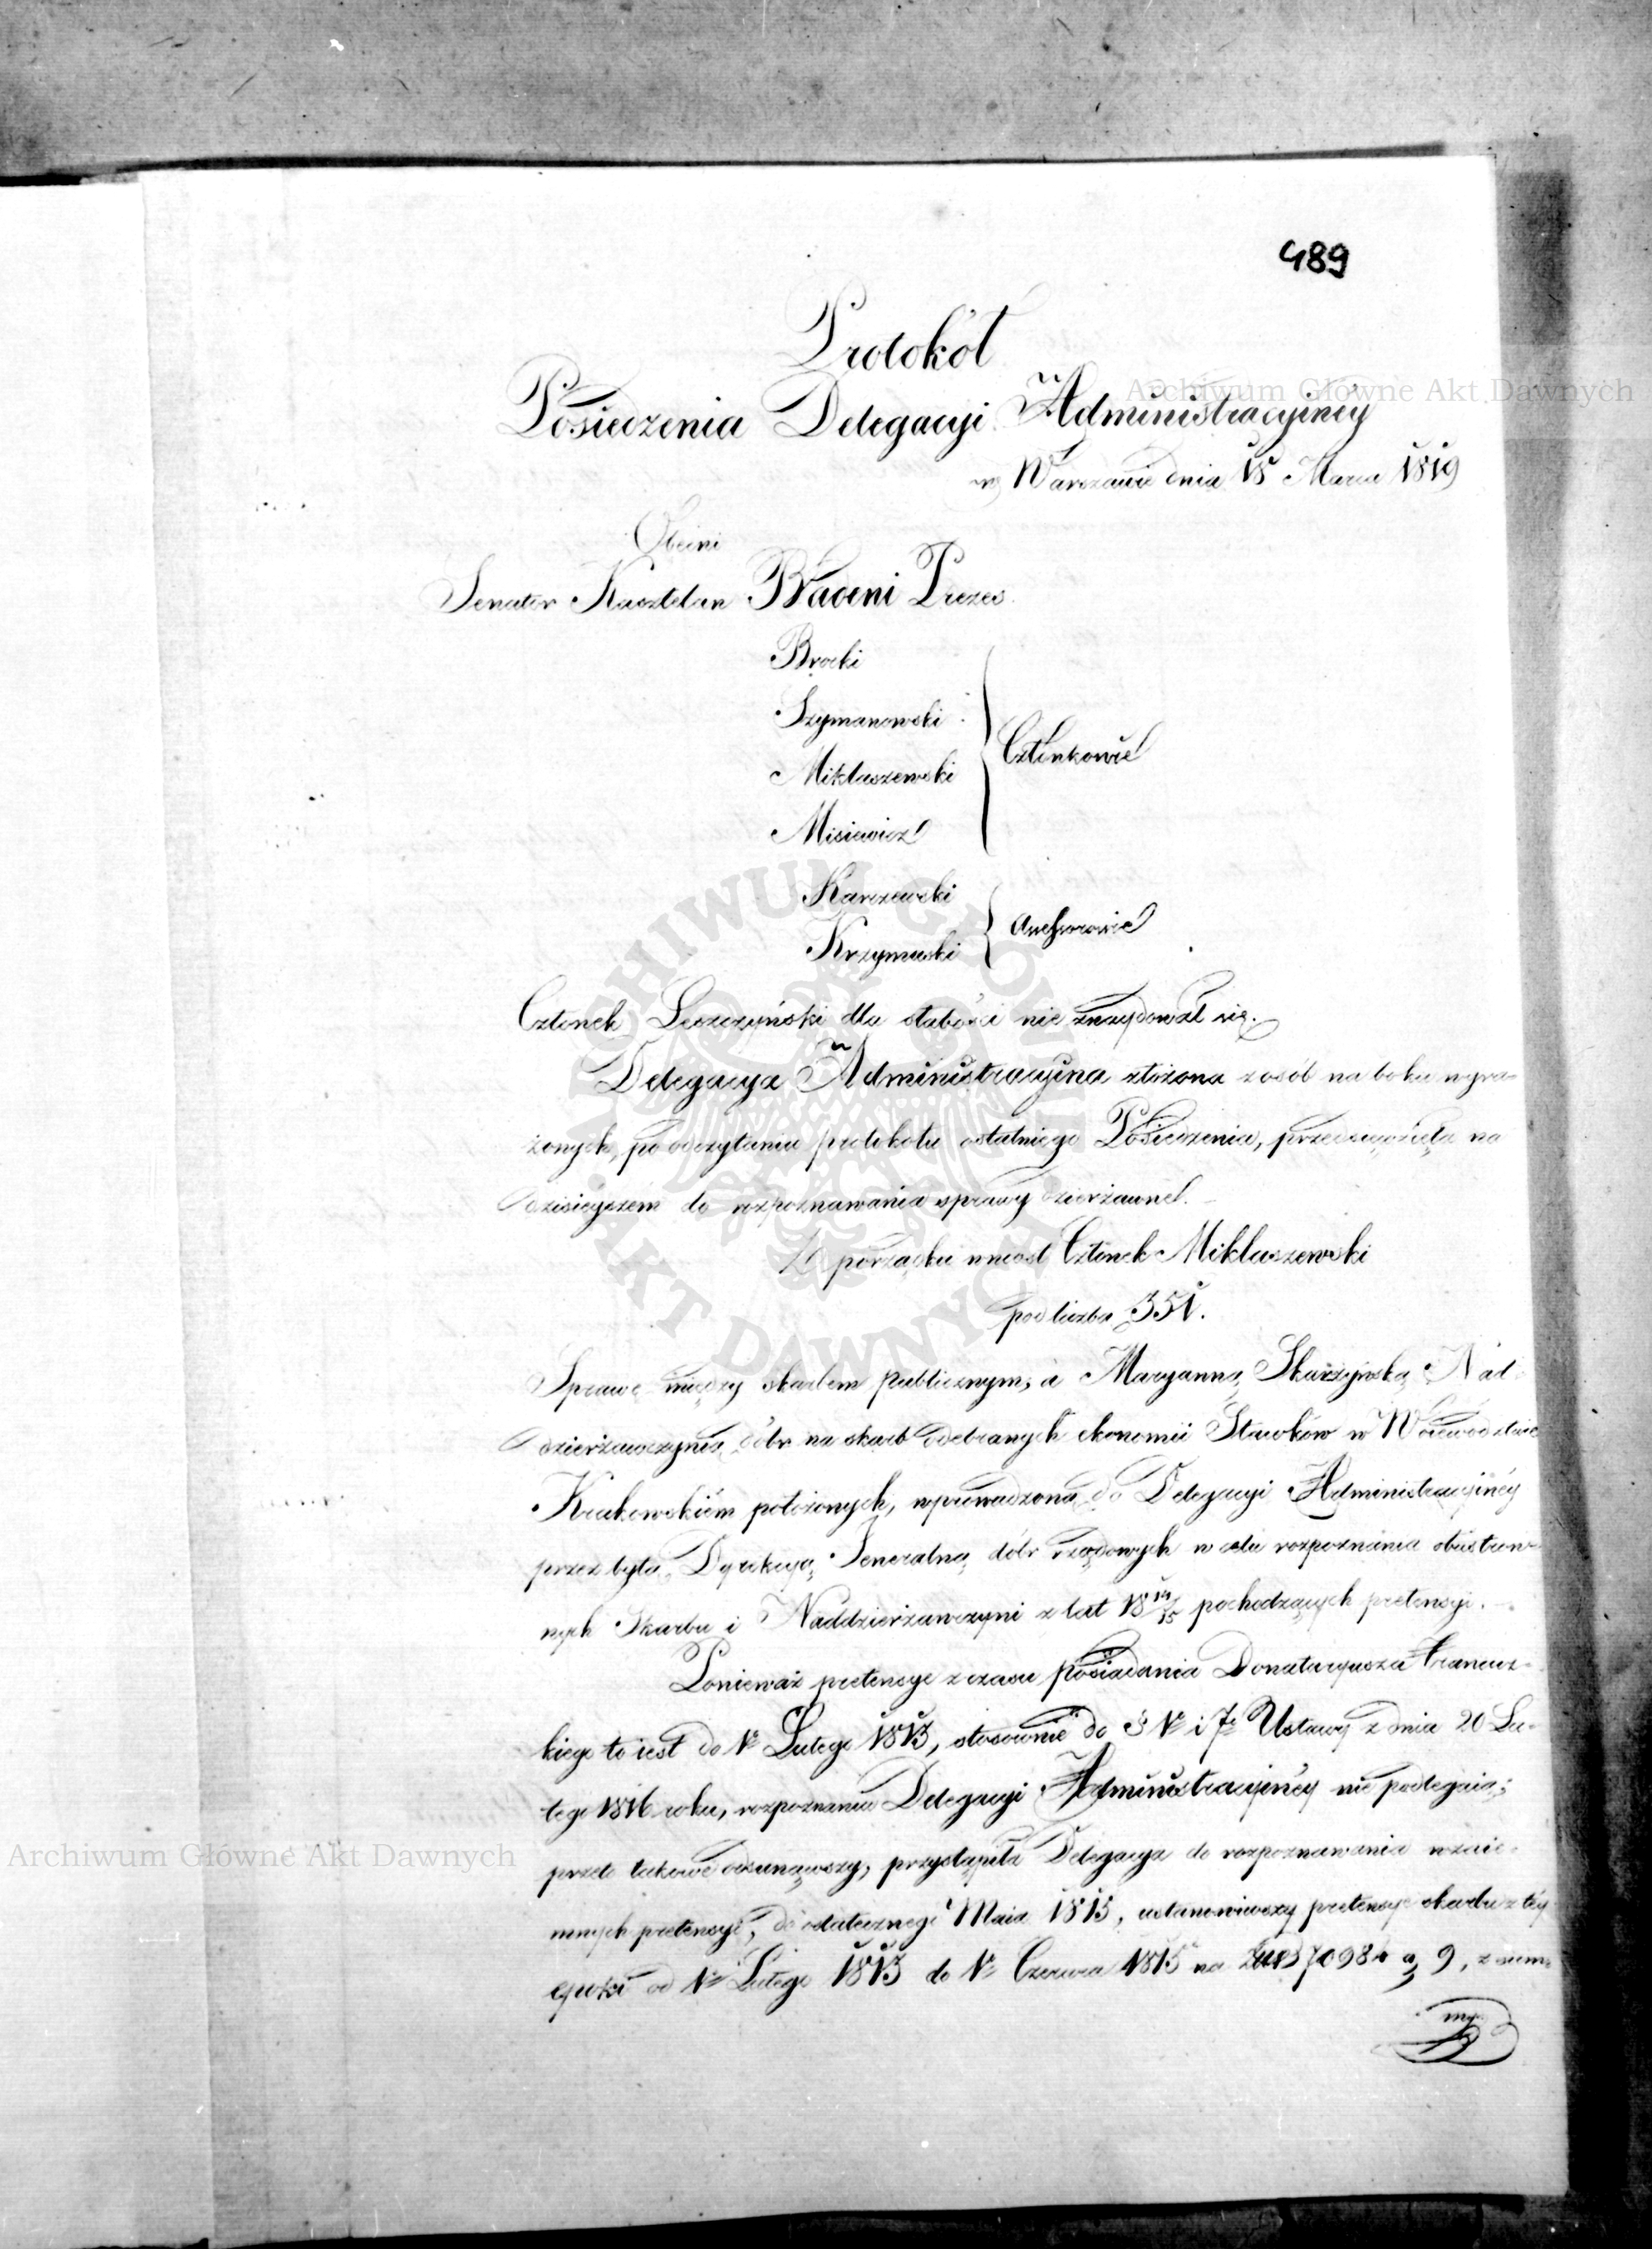 489
Protokół
Posiedzenia Delegacyi Administracyiney
w Warszawie dnia 15 Marca 1819
Obecni
Senator Kasztelan Prezes
Brocki
Szymanowski
Mikłaszewski
Misiewicz
Członkowie
Karczewski
Krzymuski
Assessorowie
Członek Leszczyński dla słabości nie znaydował się.
Delegacya Administracyina złożona z osób na boku wyra-
żonych, po odczytaniu protokołu ostatniego Posiedzenia, przedsięwzięła na
dzisieyszém do rozpoznawania sprawy dzierżawne.
Z porządku wniósł Członek Mikłaszewski
pod liczbą 351.
Sprawę między skarbem publicznym, a Maryanną Skarżyńską Nad-
dzierżawczynią dóbr na skarb odebranych ekonomii Sławków w Woiewództwie
Krakowskiém położonych, wprowadzoną do Delegacyi Administracyiney
przez byłą Dyrekcyą Generalną dóbr rządowych w celu rozpoznania obustron-
nych Skarbu i Naddzierżawczyni z lat 18 14/15 pochodzących pretensyi.
Ponieważ pretensye z czasu posiadania Donataryusza Francuz-
kiego to iest do 1o Lutego 1813, stosownie do § 1o i 7o Ustawy z dnia 20 Lu-
tego 1816 roku, rozpoznaniu Delegacyi Administracyiney nie podlegaią;
przeto takowe odsunąwszy, przystąpiła Delegacya do rozpoznawania wzaie-
mnych pretensyi, do ostatecznego Maia 1815, ustanowiwszy pretensye skarbu z téy
epoki od 1o Lutego 1813 do 1o Czerwca 1815 na 9, z sum-